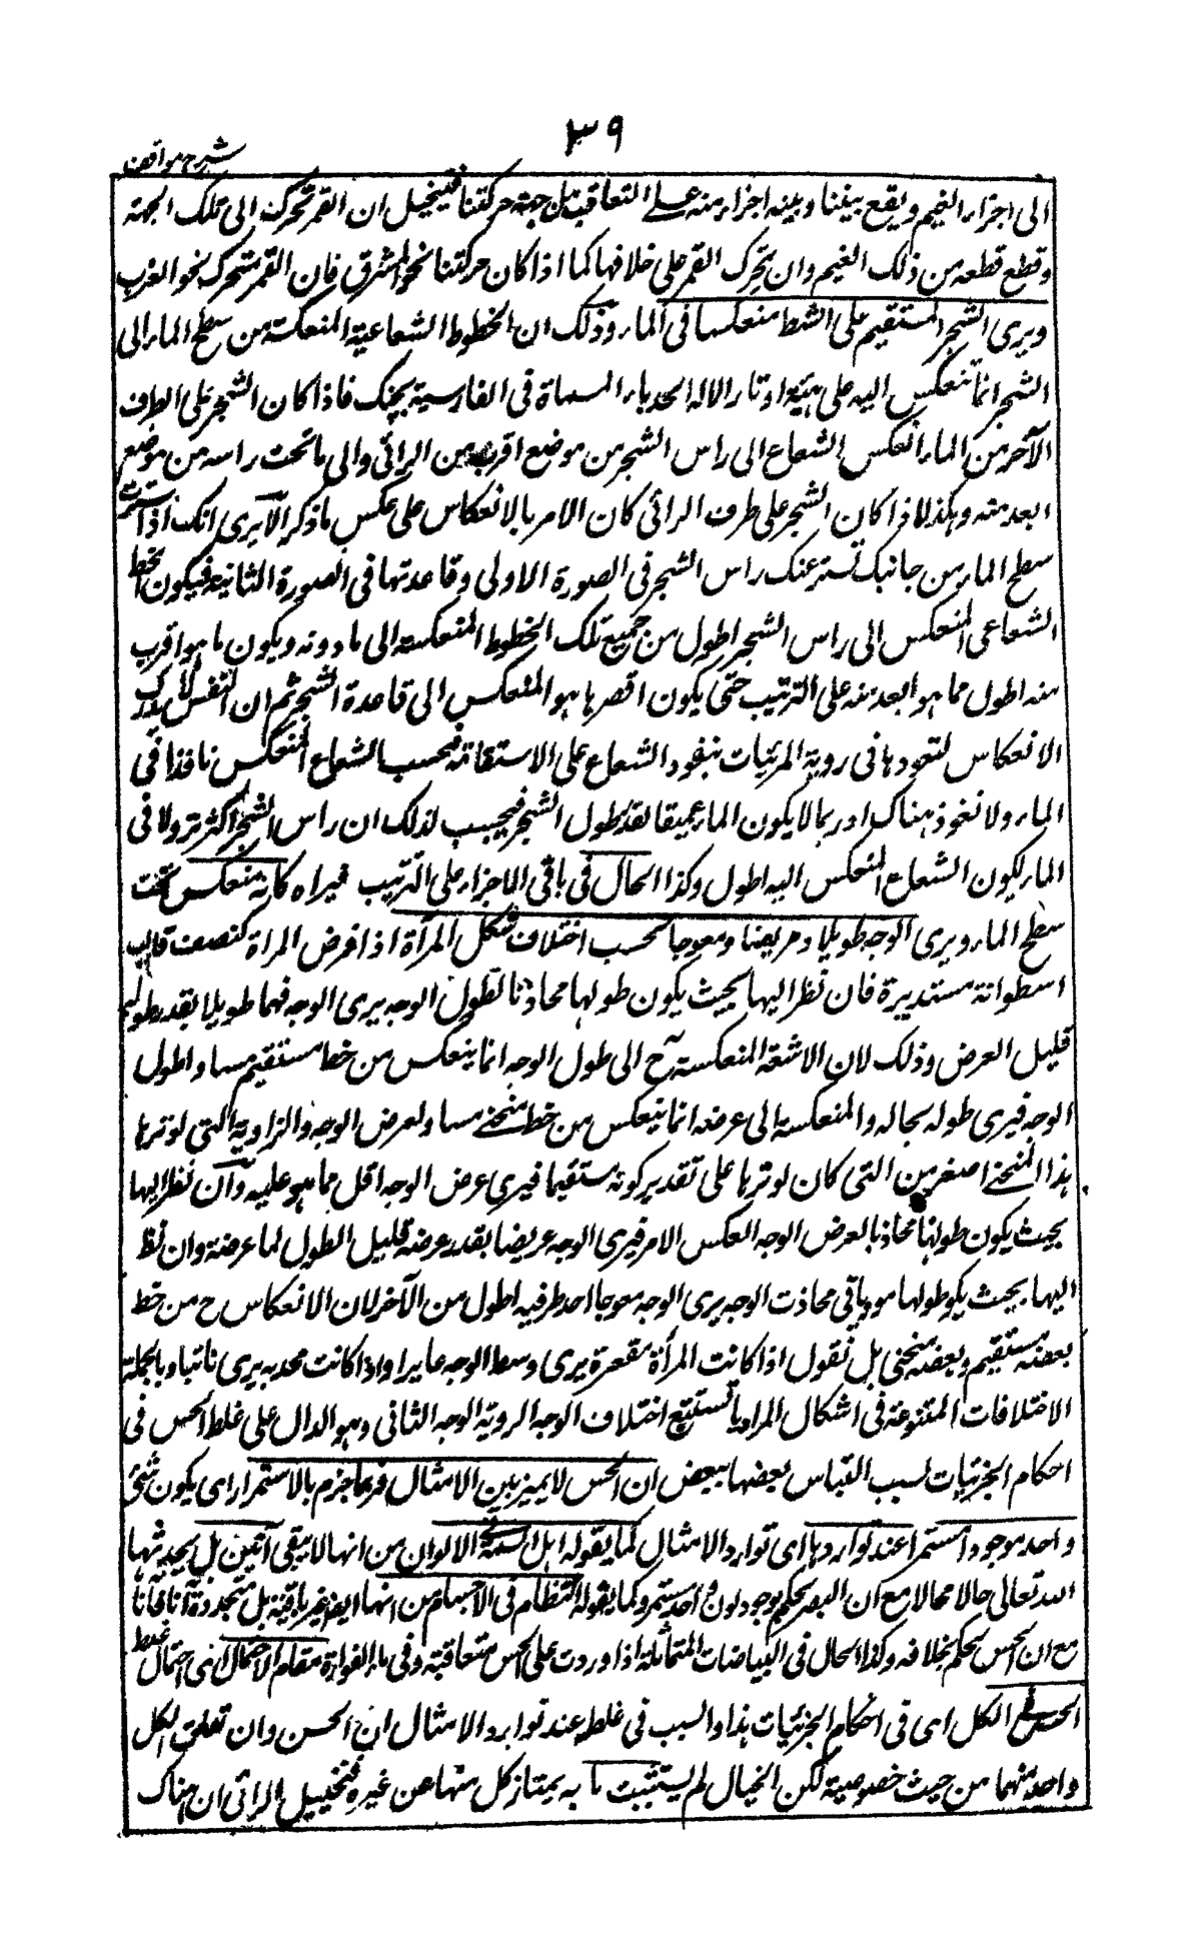 ٣٩
شرح مواقف
الى اجزاء الغيم ويقع بيننا وبينه اجزاء منه على التعاقب من جهة حركتنا فيتخيل ان القمر تحرك الى تلك الجهة
وقطع قطعة من ذلك الغيم وان تحرك القمر على خلافها كما اذا كان حركتنا نحو المشرق فان القمر متحرك نحو الغرب
ويرى الشجر المستقيم على الشط منعكسا فى الماء وذلك ان الخطوط الشعاعية المنعكسة من سطح الماء الى
الشجر انما تنعكس اليه على هيئة اوتار الالة الحدباء المسماة فى الفارسية بچنگ فاذا كان الشجر على الطرف
الآخر من الماء انعكس الشعاع الى راس الشجر من موضع اقرب من الرائى والى ما تحت راسه من موضع
ابعد منه وهكذا واذا كان الشجر على طرف الرائى كان الامر بالانعكاس على عكس ما ذكر الا يرى انك اذا سترت
سطح الماء من جانبك تستر عنك راس الشجر فى الصورة الاولى وقاعدتها فى الصورة الثانية فيكون الخط
الشعاعى المنعكس الى راس الشجر اطول من جميع تلك الخطوط المنعكسة الى ما دونه ويكون ما هو اقرب
منه اطول مما هو ابعد منه على الترتيب حتى يكون اقصرها هو المنعكس الى قاعدة الشجر ثم ان النفس لا تدرك
الانعكاس لتعودها فى روية المرئيات بنفوذ الشعاع على الاستقامة فيحسب الشعاع المنعكس نافذا فى
الماء ولا نفوذ هناك اذ ربما لا يكون الماء عميقا بقدر طول الشجر فيحسب لذلك ان راس الشجر اكثر نزولا فى
الماء لكون الشعاع المنعكس اليه اطول وكذا الحال فى باقى الاجزاء على الترتيب فيراه كانه منعكس تحت
سطح الماء ويرى الوجه طويلا وعريضا ومعوجا بحسب اختلاف شكل المرآة اذا فرض المراة كنصف قالب
اسطوانة مستديرة فان نظر اليها بحيث يكون طولها محاذيا لطول الوجه يرى الوجه فيها طويلا بقدر طوله
قليل العرض وذلك لان الاشعة المنعكسة ح الى طول الوجه انما ينعكس من خط مستقيم مساو لطول
الوجه فيرى طوله بحاله والمنعكسة الى عرضه انما ينعكس من خط منحنى مساو لعرض الوجه والزاوية التى لوترها
هذا المنحنى اصغر من التى كان لوترها على تقدير كونه مستقيما فيرى عرض الوجه اقل مما هو عليه وان نظر اليها
بحيث يكون طولها محاذيا لعرض الوجه انعكس الامر فيرى الوجه عريضا بقدر عرضه قليل الطول لما عرفته وان نظر
اليها بحيث يكون طولها محاذات الوجه يرى الوجه معوجا احد طرفيه اطول من الآخر لان الانعكاس ح من خط
بعضه مستقيم وبعضه منحنى بل نقول اذا كانت المرأة مقعرة يرى وسط الوجه غايرا واذا كانت محدبة يرى ناتيا وبالجملة
الاختلافات المتنوعة فى اشكال المرايا تستتبع اختلاف الوجه الروية الوجه الثانى وهو الدال على غلط الحس فى
احكام الجزئيات بسبب التباس بعضها ببعض ان الحس لا يميز بين الامثال فربما جزم بالاستمرار اى يكون شئ
واحد موجودا مستمرا عند تواردها اى توارد الامثال كما يقوله اهل السنة فى الالوان من انها لا يبقى آنين بل يحدثها
الله تعالى حالا فحالا مع ان البصر يحكم بوجود لون واحد مستمر وكما يقوله النظام فى الاجسام من انها ايضا غير باقية بل متجددة آنا فآنا
مع ان الحس يحكم بخلافه وكذا الحال فى البياضات المتماثلة اذا وردت على الحس متعاقبة وفى ماء الفوارة فقام الاحتمال اى احتمال غلط
الحس فى الكل اى فى احكام الجزئيات هذا والسبب فى غلطه عند توارد الامثال ان الحس وان تعلق بكل
واحد منهما من حيث خصوصيته لكن الخيال لم يستثبت ما به يمتاز كل منها عن غيره فيتخيل الرائى ان هناك